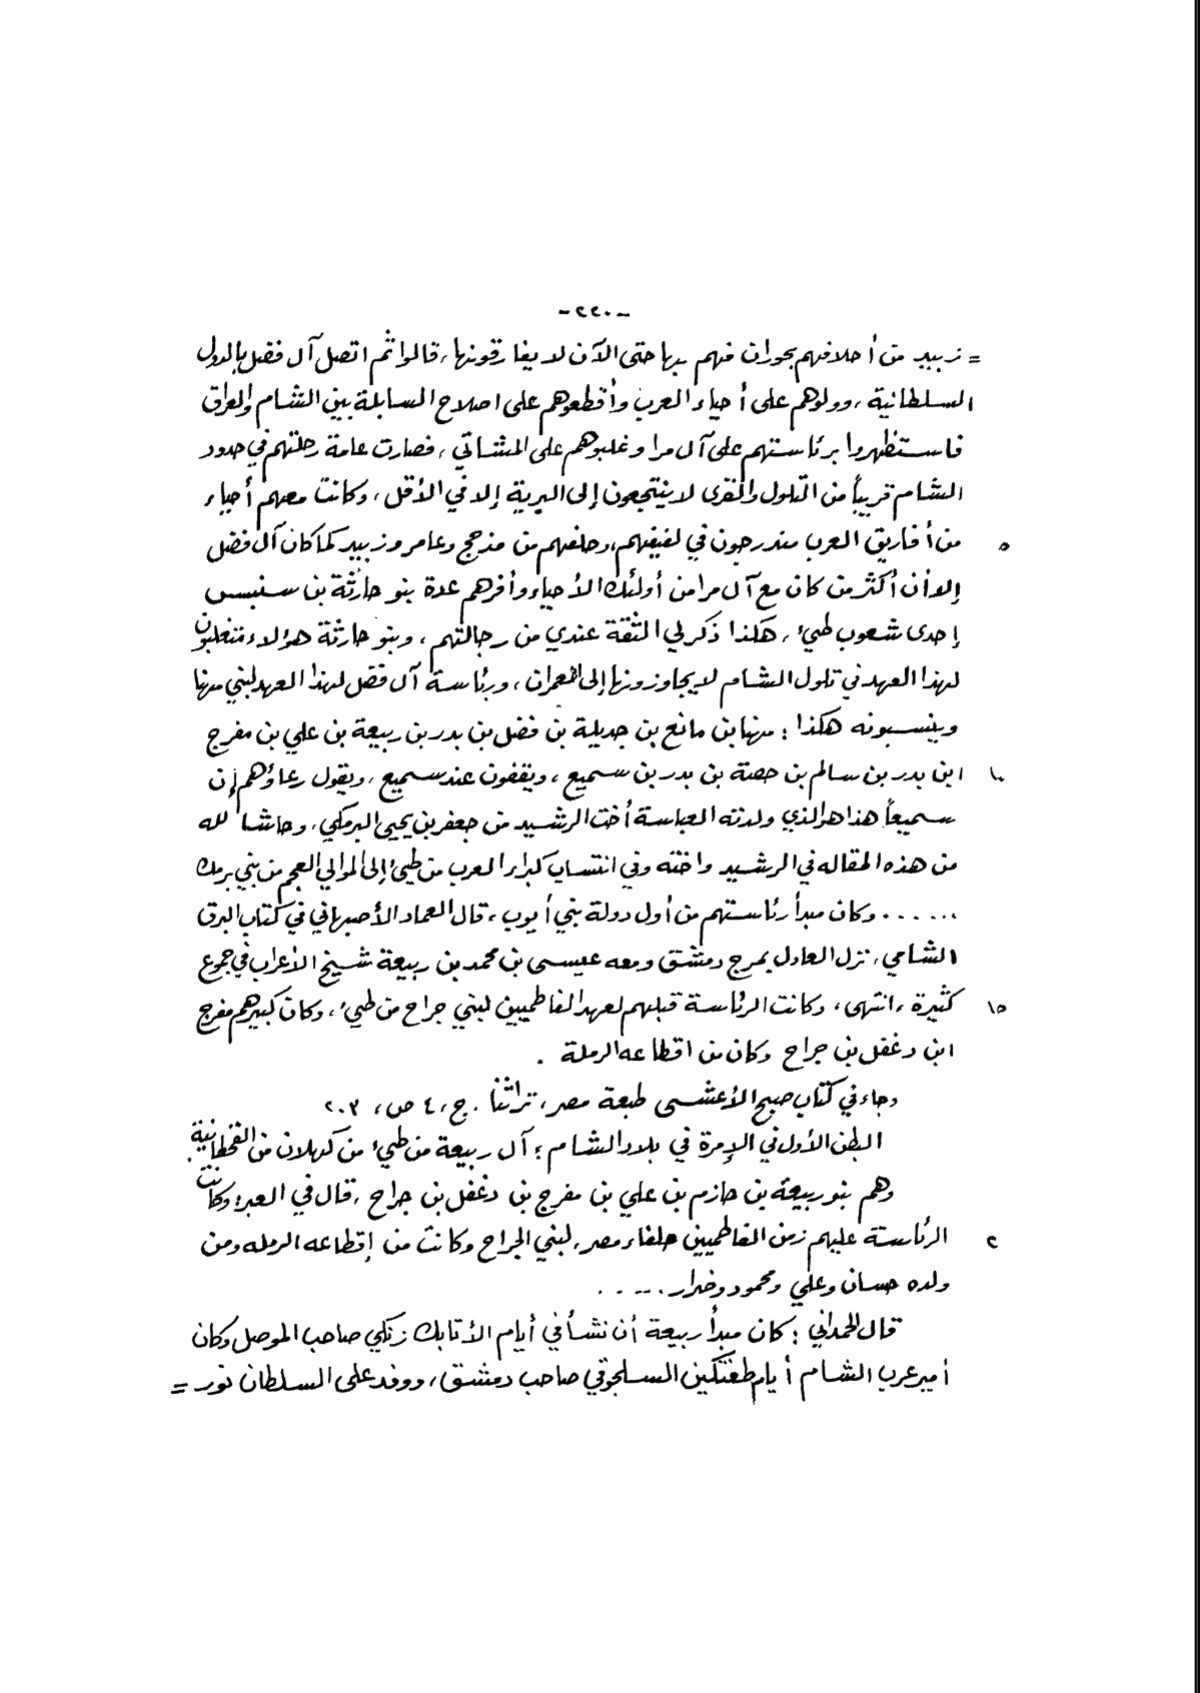 -٢٢٠-
= زبيد من أحلافهم بحوران فهم بها حتى الآن لا يفارقونها، قالوا ثم اتصل آل فضل بالدول
السلطانية، وولوهم على أحياء العرب وأقطعوهم على اصلاح السابلة بين الشام والعراق
فاستظهروا برئاستهم على آل مرا وغلبوهم على المشاتي، فصارت عامة رحلتهم في حدود
الشام قريباً من التلول والقرى لا ينتجعون إلى البرية إلا في الأقل، وكانت معهم أحياء
٥ من أفاريق العرب مندرجون في لفيفهم وحلفهم من مذحج وعامر وزبيد كما كان آل فضل
إلا أن أكثر من كان مع آل مرا من أولئك الأحياء وأفرهم عدة بنو حارثة بن سنبس
إحدى شعوب طيء، هكذا ذكر لي الثقة عندي من رجالتهم، وبنو حارثة هؤلاء متغلبون
لهذا العهد في تلول الشام لا يجاوزونها إلى العمران، ورئاسة آل فضل لهذا العهد لبني مهنا
وينسبونه هكذا : مهنا بن مانع بن جديلة بن فضل بن بدر بن ربيعة بن علي بن مفرج
١٠ ابن بدر بن سالم بن حصة بن بدر بن سميع، ويقفون عند سميع، ويقول رعاؤهم إن
سميعاً هذا هو الذي ولدته العباسة أخت الرشيد من جعفر بن يحيى البرمكي، وحاشا لله
من هذه المقاله في الرشيد واخته وفي انتساب كبراء العرب من طيء إلى الموالي العجم من بني برمك
...... وكان مبدأ رئاستهم من أول دولة بني أيوب، قال العماد الأصبهاني في كتاب البرق
الشامي، نزل العادل بمرج دمشق ومعه عيسى بن محمد بن ربيعة شيخ الأعراب في جموع
١٥ كثيرة، انتهى، وكانت الرئاسة قبلهم لعهد الفاطميين لبني جراح من طيء، وكان كبيرهم مفرج
ابن دغفل بن جراح وكان من اقطاعه الرملة .
وجاء في كتاب صبح الأعشى طبعة مصر، تراثنا . ج، ٤ ص، ٢٠٣
البطن الأول في الإمرة في بلاد الشام : آل ربيعة من طيء من كهلان من القحطانية.
وهم بنو ربيعة بن حازم بن علي بن مفرج بن دغفل بن جراح، قال في العبر: وكانت
٢ الرئاسة عليهم زمن الفاطميين خلفاء مصر، لبني الجراح وكانت من إقطاعه الرمله ومن
ولده حسان وعلي ومحمود وضرار.....
قال الحمداني : كان مبدأ ربيعة أن نشأ في أيام الأتابك زنكي صاحب الموصل وكان
أمير عرب الشام أيام طغتكين السلجوقي صاحب دمشق، ووفد على السلطان نور =